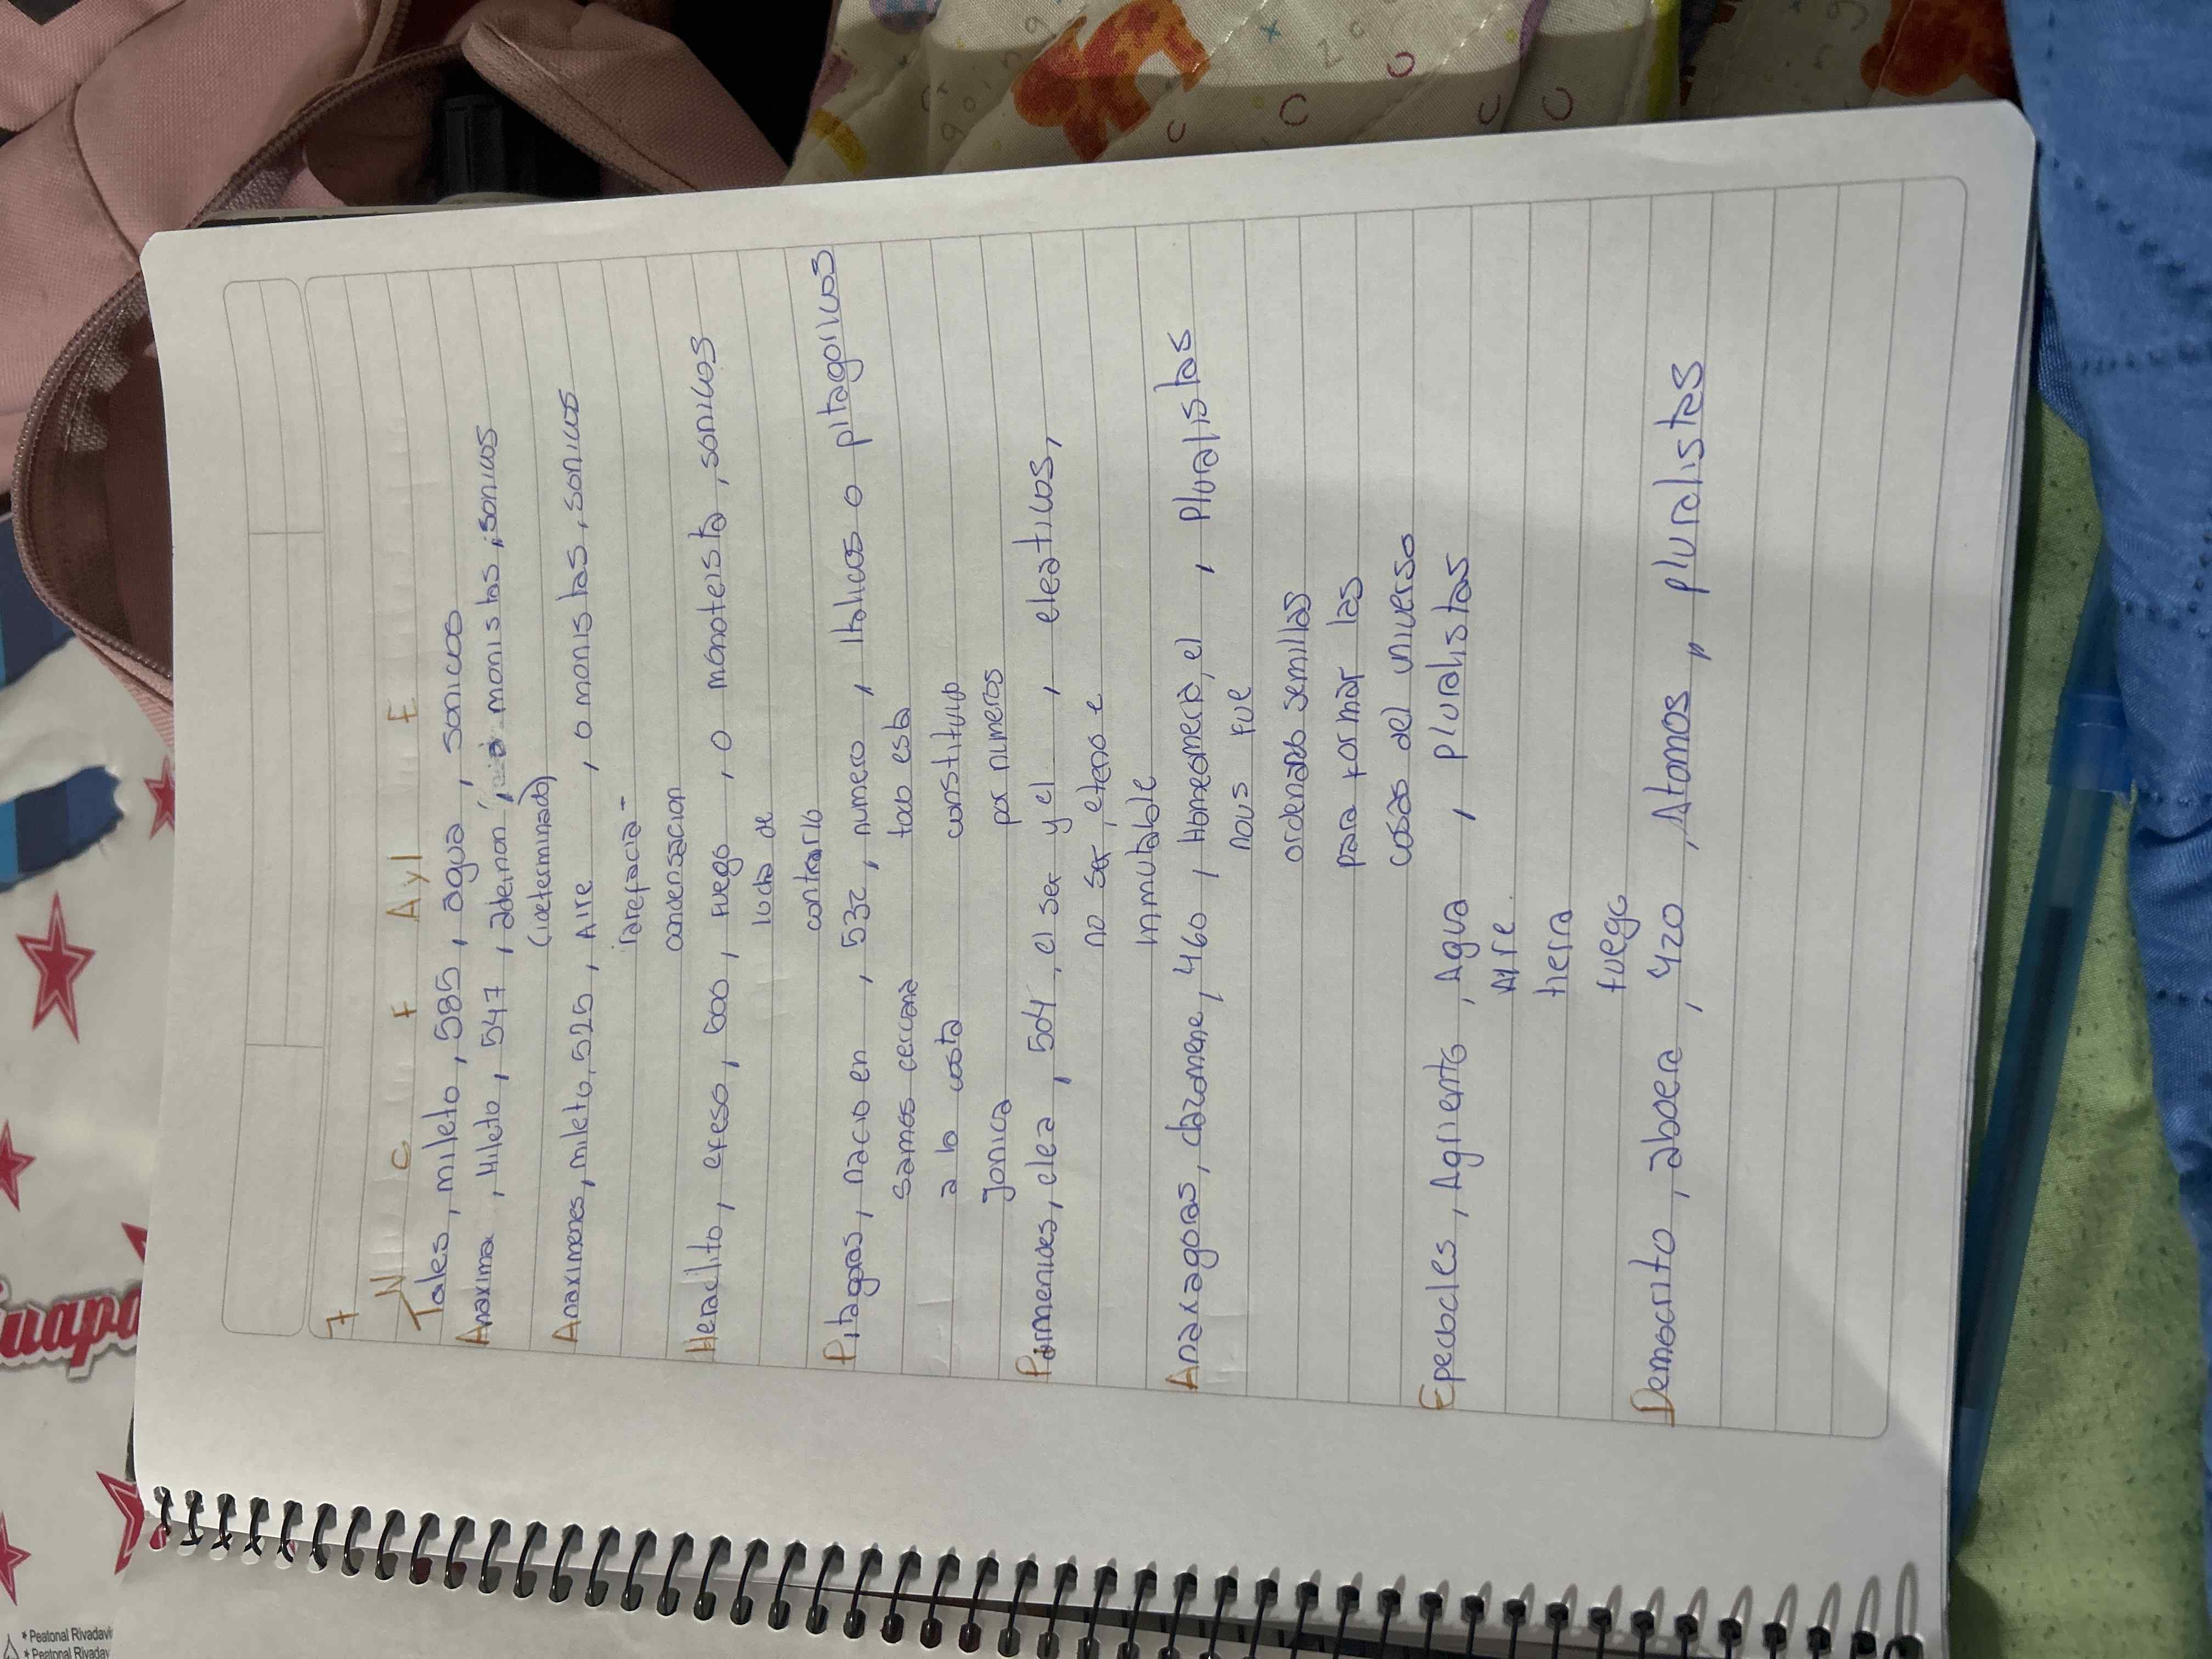 7
N C F Ayl E
Tales, mileto, 585, agua, sonicos
Anaxima, Mileto, 547, monistas, sonicos
(ideterminado)
Anaximenes, mileto, 525, Aire, o monistas, sonicos
rarefacia-
condensacion
Heraclito, efeso, 500, fuego, o monoteista, sonicos
lucta de
contrario
Pitagoras, nacio en, 532, numero, Italicos o pitagoricos
Samos cercana todo esta
a la costa constituid
Jonica por numeros
Parmenides, elea, 504, el ser y el, eleaticos,
no ser, eterno e
inmutable
Anaxagoras, clazomene, 460, Homeomeria, el, Pluralistas
nous fue
ordenando semillas
para formar las
cosas del universo
Epedocles, Agriento, Agua, pluralistas
Aire
tierra
fuego
Democrito, abdera, 420, Atomos, pluralistas
uapa
* Peatonal Rivadavi
* Peatonal Rivaday